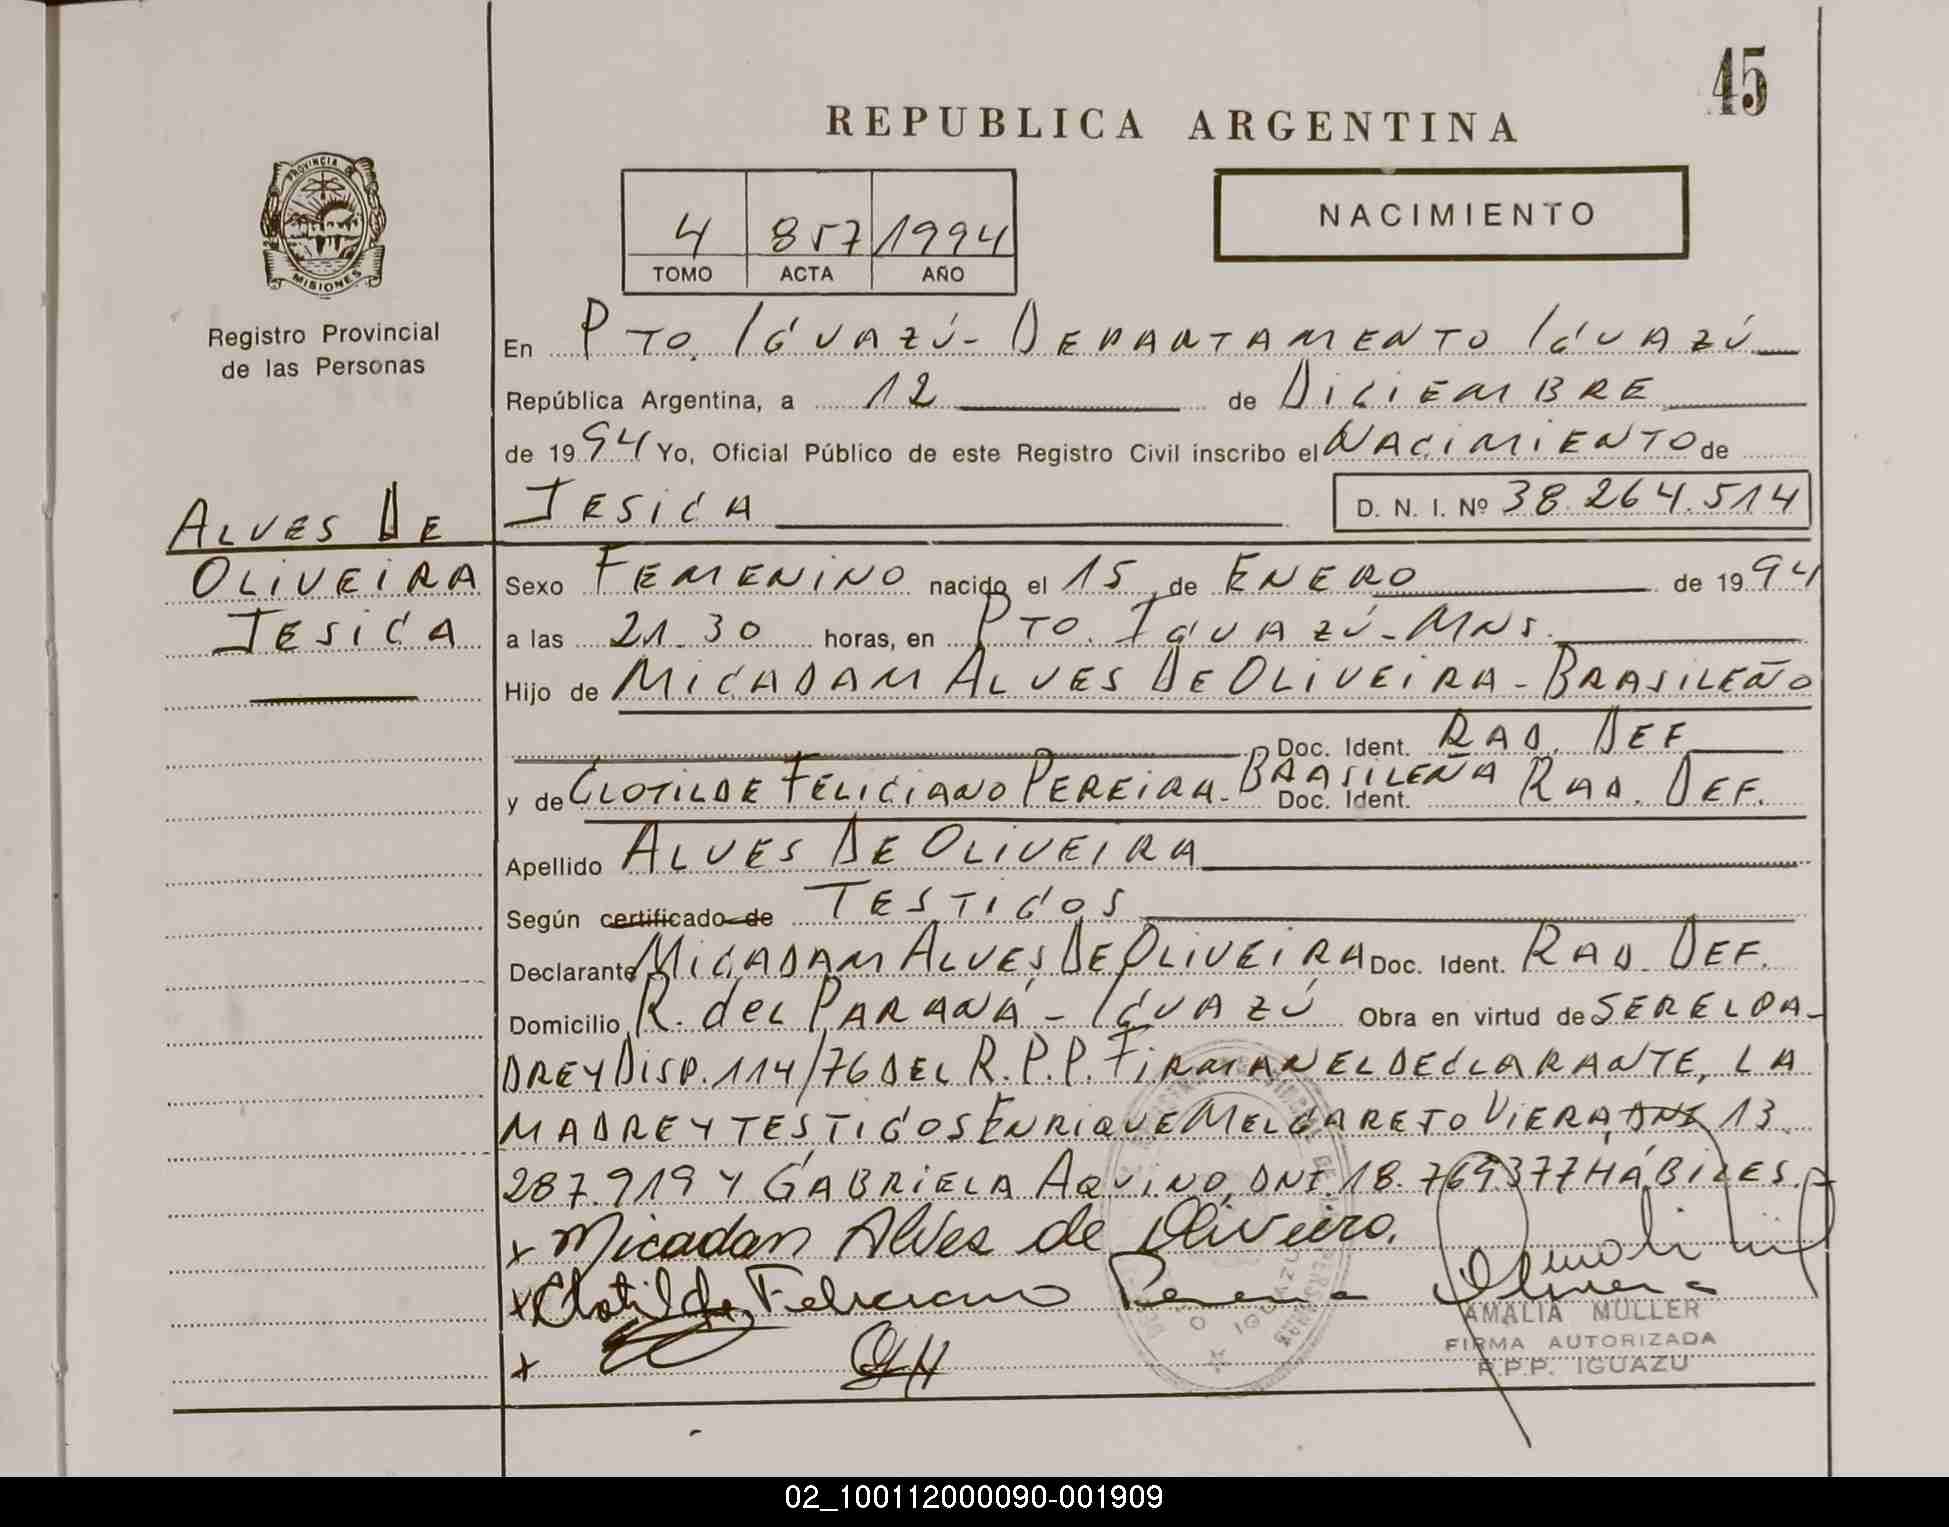 45
REPUBLICA ARGENTINA
PROVINCIA DE
MISIONES
Registro Provincial
de las Personas
4 857 1994
TOMO ACTA AÑO
NACIMIENTO
En PTO. IGUAZÚ - DEPARTAMENTO IGUAZÚ
República Argentina, a 12 de DICIEMBRE
de 1994 Yo, Oficial Público de este Registro Civil inscribo el NACIMIENTO de
JESICA D. N. I. Nº 38.264.514
ALVES DE
OLIVEIRA
JESICA
Sexo FEMENINO nacido el 15 de ENERO de 1994
a las 21.30 horas, en PTO. IGUAZÚ - MNS.
Hijo de MICADAM ALVES DE OLIVEIRA - BRASILEÑO
Doc. Ident. RAD. DEF
y de CLOTILDE FELICIANO PEREIRA - BRASILEÑA Doc. Ident. RAD. DEF.
Apellido ALVES DE OLIVEIRA
Según certificado de TESTIGOS
Declarante MICADAM ALVES DE OLIVEIRA Doc. Ident. RAD. DEF.
Domicilio R. del PARANÁ - IGUAZÚ Obra en virtud de SER EL PA-
DRE Y DISP. 114/76 DEL R.P.P. FIRMAN EL DECLARANTE, LA
MADRE Y TESTIGOS ENRIQUE MELGAREJO VIERA, DNI 13.
287.919 Y GABRIELA AQUINO, DNI. 18.769377 HÁBILES.
x Micadan Alves de Oliveiro.
x Clotilde Feliciano Pereira
x
AMALIA MULLER
FIRMA AUTORIZADA
R.P.P. IGUAZU
02_100112000090-001909